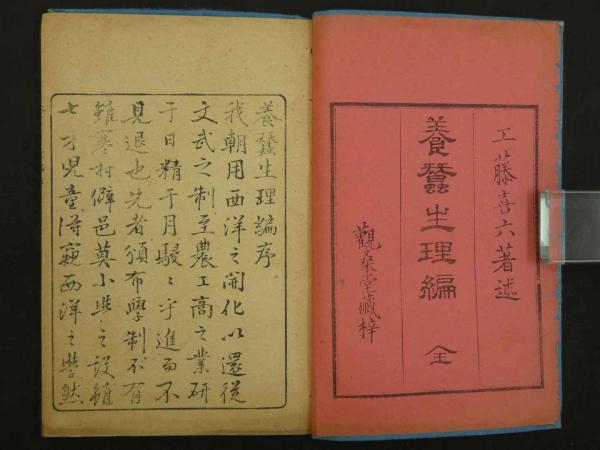 工藤喜六著述
養蚕生理編 全
觀桑堂藏梓
養蚕生理編序
我朝用西洋之開化以還從
文武之制至農工商之業研
于日精于月駸〻乎進而不
見退也先者頒布學制不有
雖寒村僻邑莫小学之設雖
七才兒童得窺西洋之学然